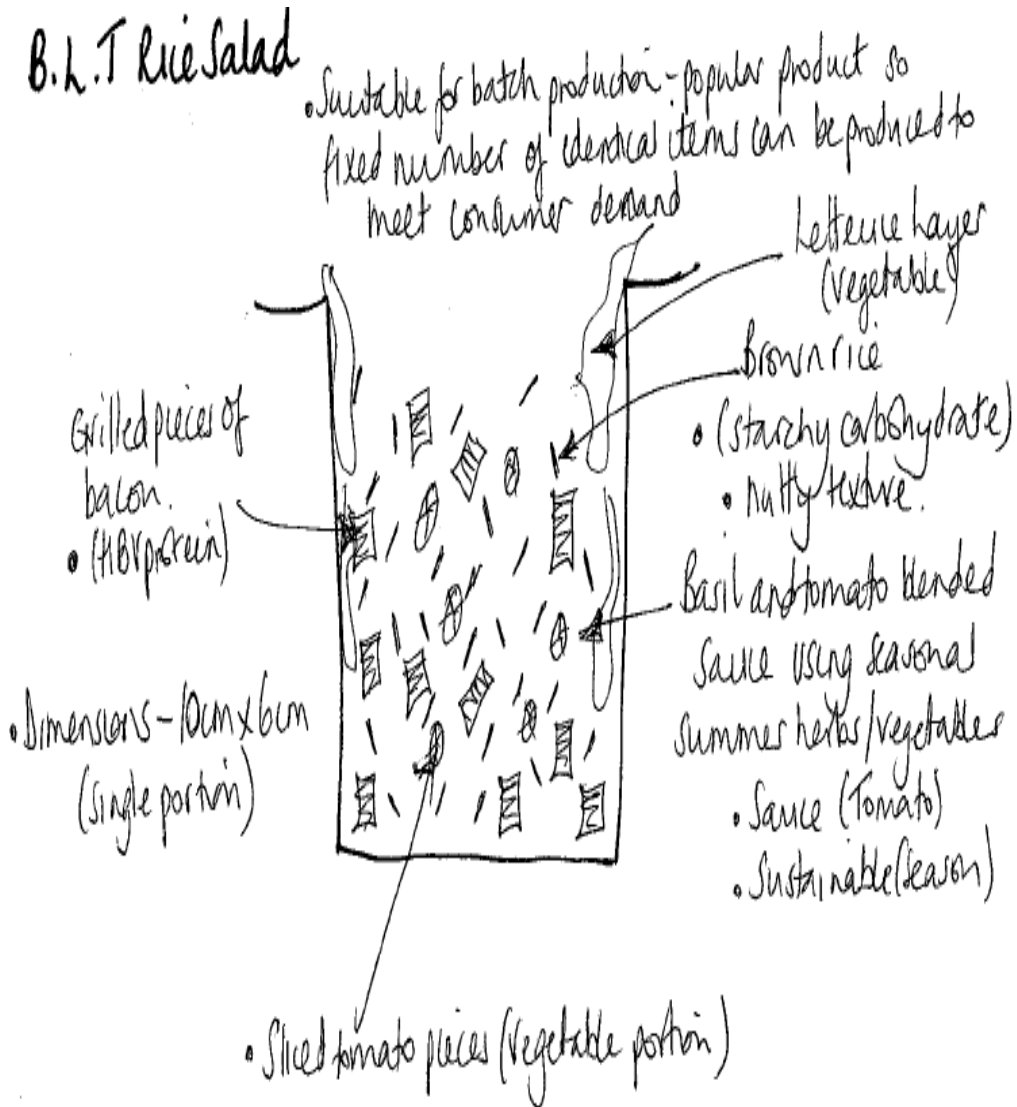 B.L.T Rice Salad
•Suitable for batch production - popular product so
fixed number of identical items can be produced to
meet consumer demand
Lettuce Layer
(vegetable)
Brown rice
• (starchy carbohydrate)
• nutty texture.
Grilled pieces of
bacon.
• (HBV protein)
Basil and tomato blended
sauce using seasonal
summer herbs/vegetables
• Sauce (Tomato)
• Sustainable (season)
•Dimensions - 10cm x 6cm
(single portion)
• Sliced tomato pieces (vegetable portion)